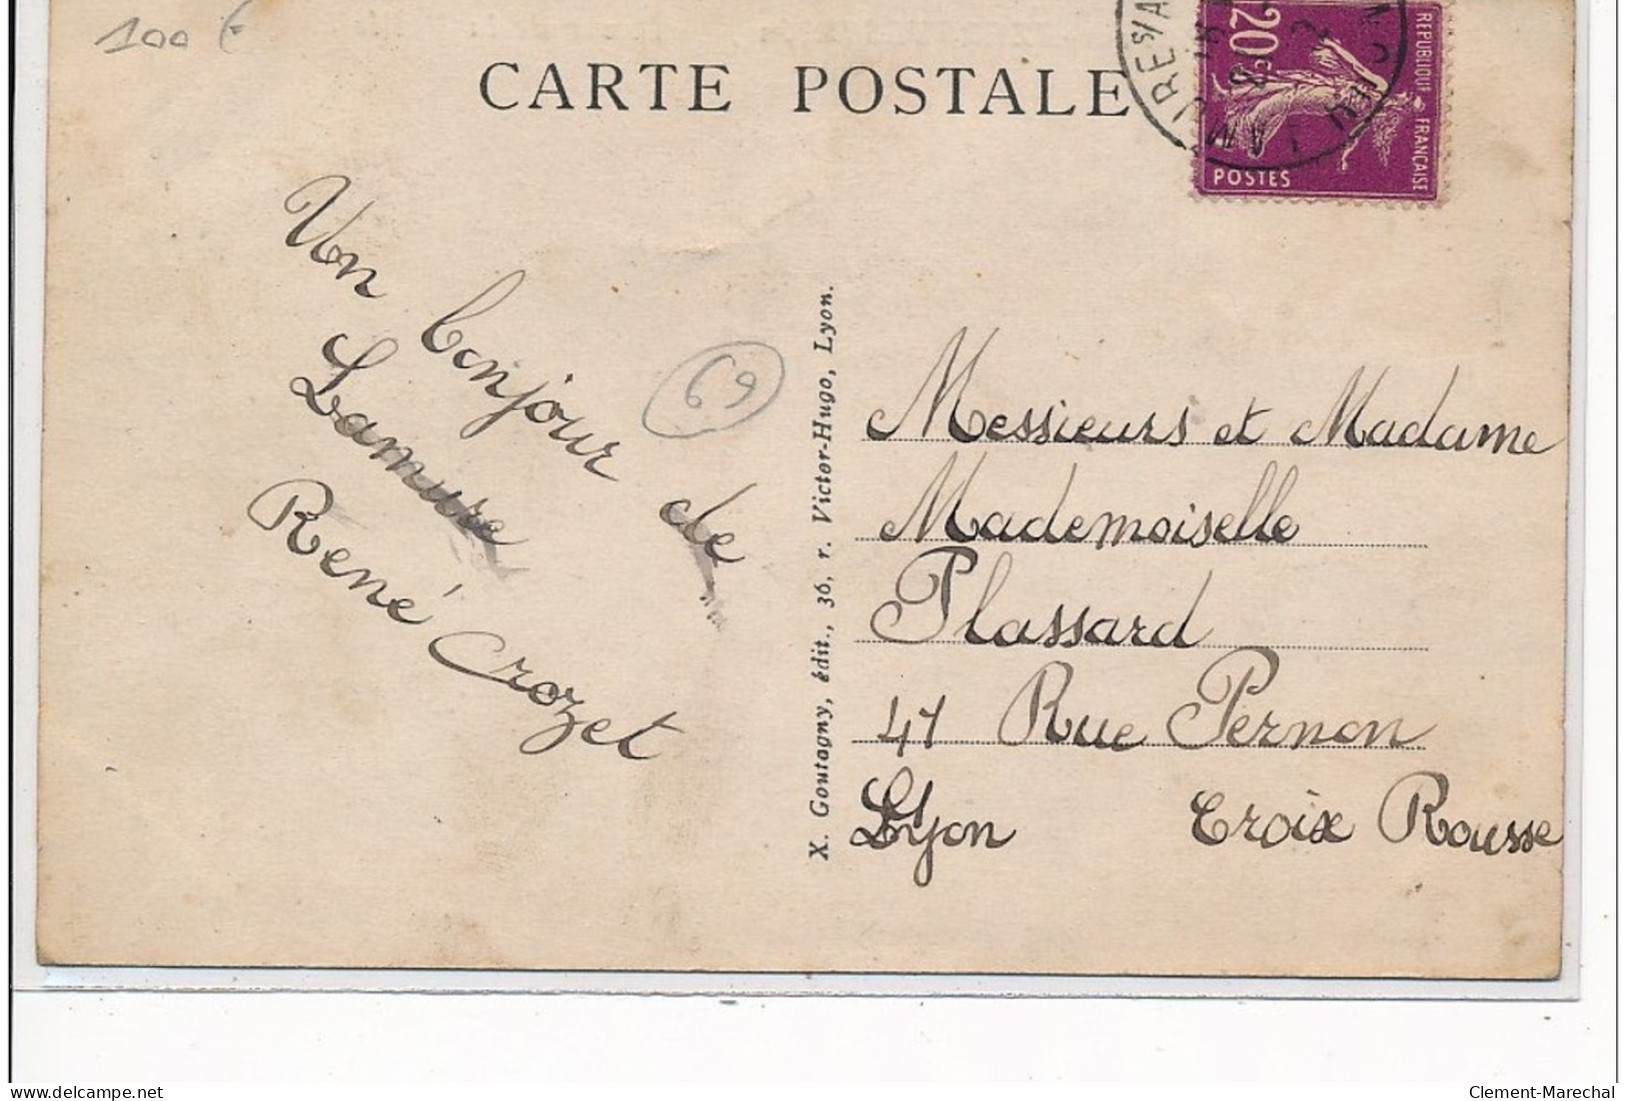 100 €
CARTE POSTALE
20c
REPUBLIQUE FRANÇAISE
POSTES
Un bonjour de
Lamure
René Crozet
69
X. Goutagny, édit., 36, r. Victor-Hugo, Lyon.
Messieurs et Madame
Mademoiselle
Plassard
41 Rue Pernon
Lyon Croix Rousse
Clement-Marechal